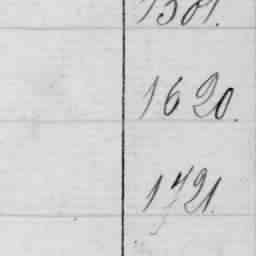 1581.
1620.
1721.